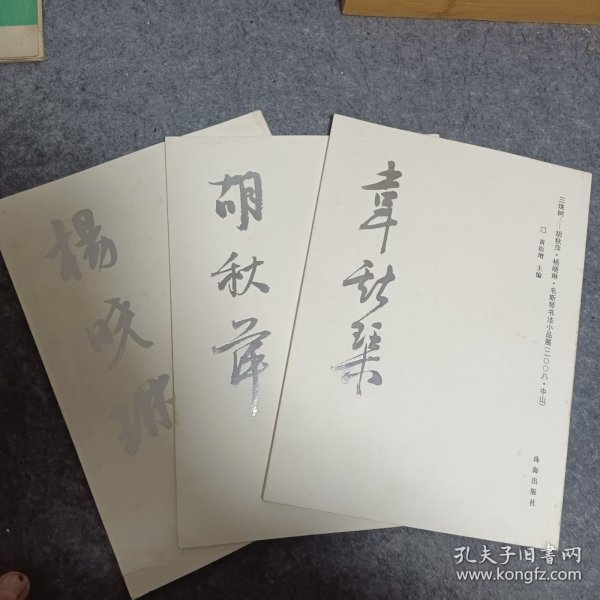 楊晓琳
胡秋萍
韋斯琴
三珠树——胡秋萍·杨晓琳·韦斯琴书法小品展(二〇〇八·中山)
□ 黄衍增 主编
珠海出版社
孔夫子旧书网
www.kongfz.com